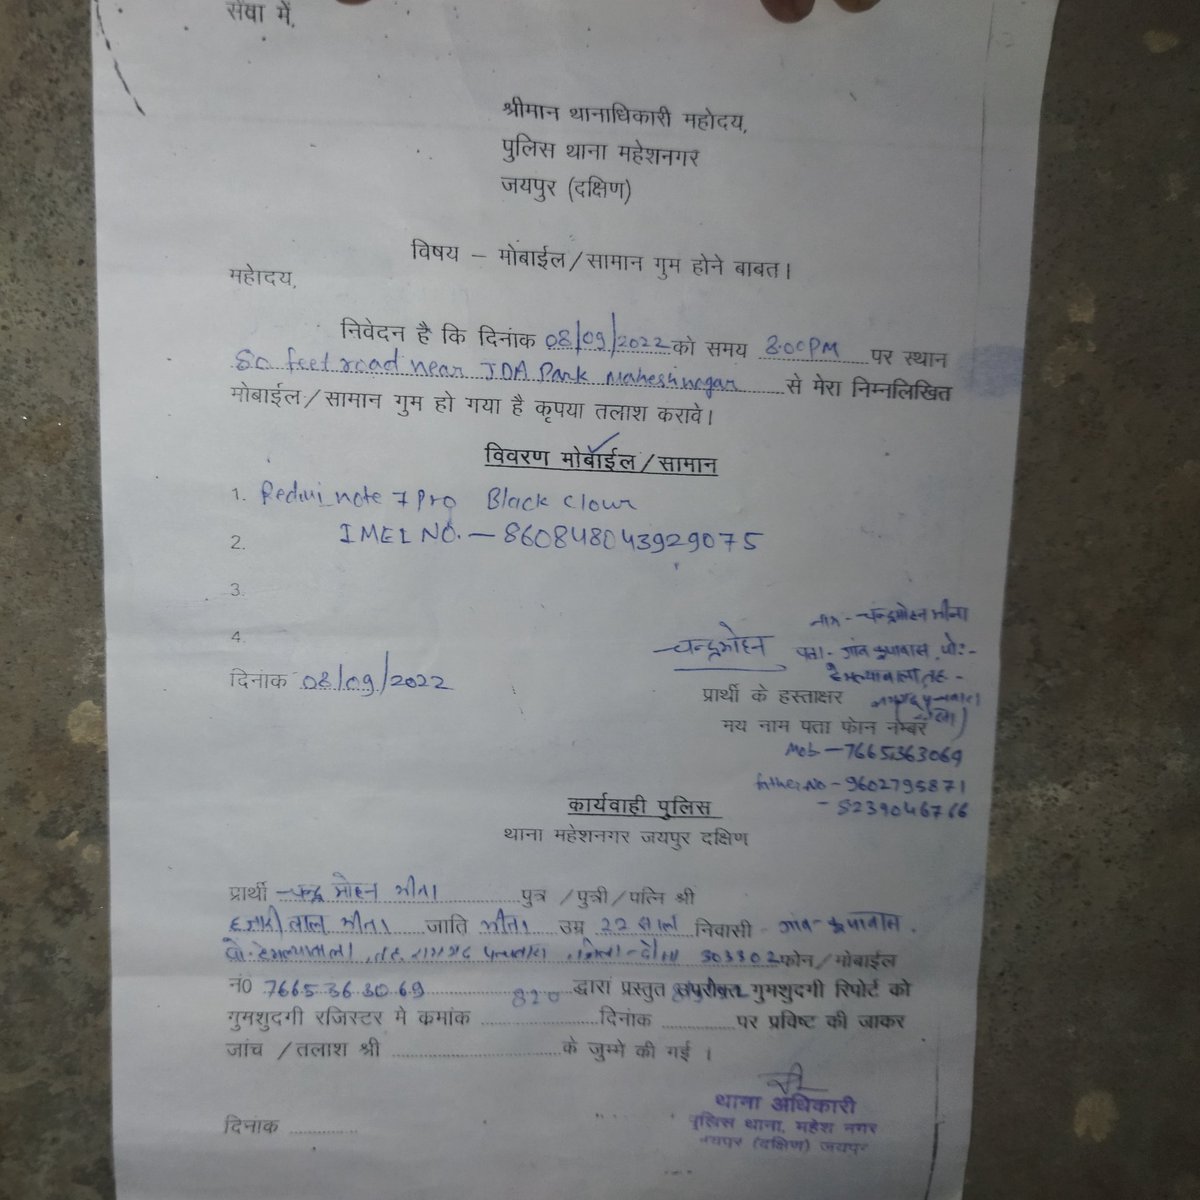 सेवा में,
श्रीमान थानाधिकारी महोदय,
पुलिस थाना महेशनगर
जयपुर (दक्षिण)
विषय – मोबाईल/सामान गुम होने बाबत।
महोदय,
निवेदन है कि दिनांक 08/09/2022 को समय 8:00PM पर स्थान
80 feet road near JDA Park Maheshnagar से मेरा निम्नलिखित
मोबाईल/सामान गुम हो गया है कृपया तलाश करावे।
विवरण मोबाईल/सामान
1. Redmi note 7 pro Black Clour
2. IMEI NO. – 860848043929075
3.
4.
नाम - चन्द्रमोहन मीना
चन्द्रमोहन पता - गांव रूपावास, पो:-
दिनाक 08/09/2022
प्रार्थी के हस्ताक्षर
मय नाम पता फोन नम्बर
Mob – 7665363069
father No – 9602795871
– 8239046766
कार्यवाही पुलिस
थाना महेशनगर जयपुर दक्षिण
प्रार्थी चन्द्र मोहन मीना पुत्र /पुत्री/पत्नि श्री
हजारी लाल मीना जाति मीना उम्र 22 साल निवासी गांव - रूपावास,
पो. जिला - दौसा 303302 फोन/मोबाईल
नं0 7665363069 820 द्वारा प्रस्तुत उपरोक्त गुमशुदगी रिपोर्ट को
गुमशुदगी रजिस्टर मे कमांक दिनांक पर प्रविष्ट की जाकर
जांच /तलाश श्री के जुम्मे की गई ।
थाना अधिकारी
पुलिस थाना, महेश नगर
जयपुर (दक्षिण) जयपुर
दिनाक